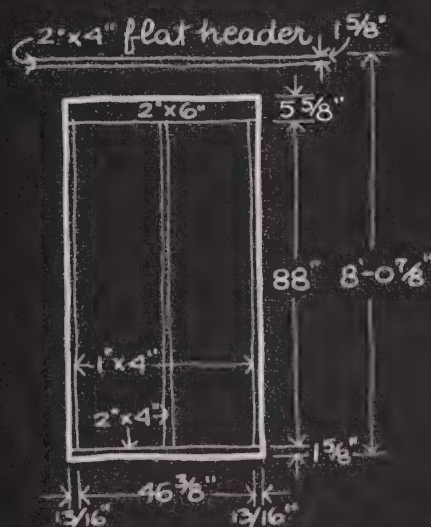 2"x4" flat header 1 5/8"
2"x6"
5 5/8"
88"
8'-0 7/8"
1"x4"
2"x4"
1 5/8"
46 3/8"
13/16"
13/16"